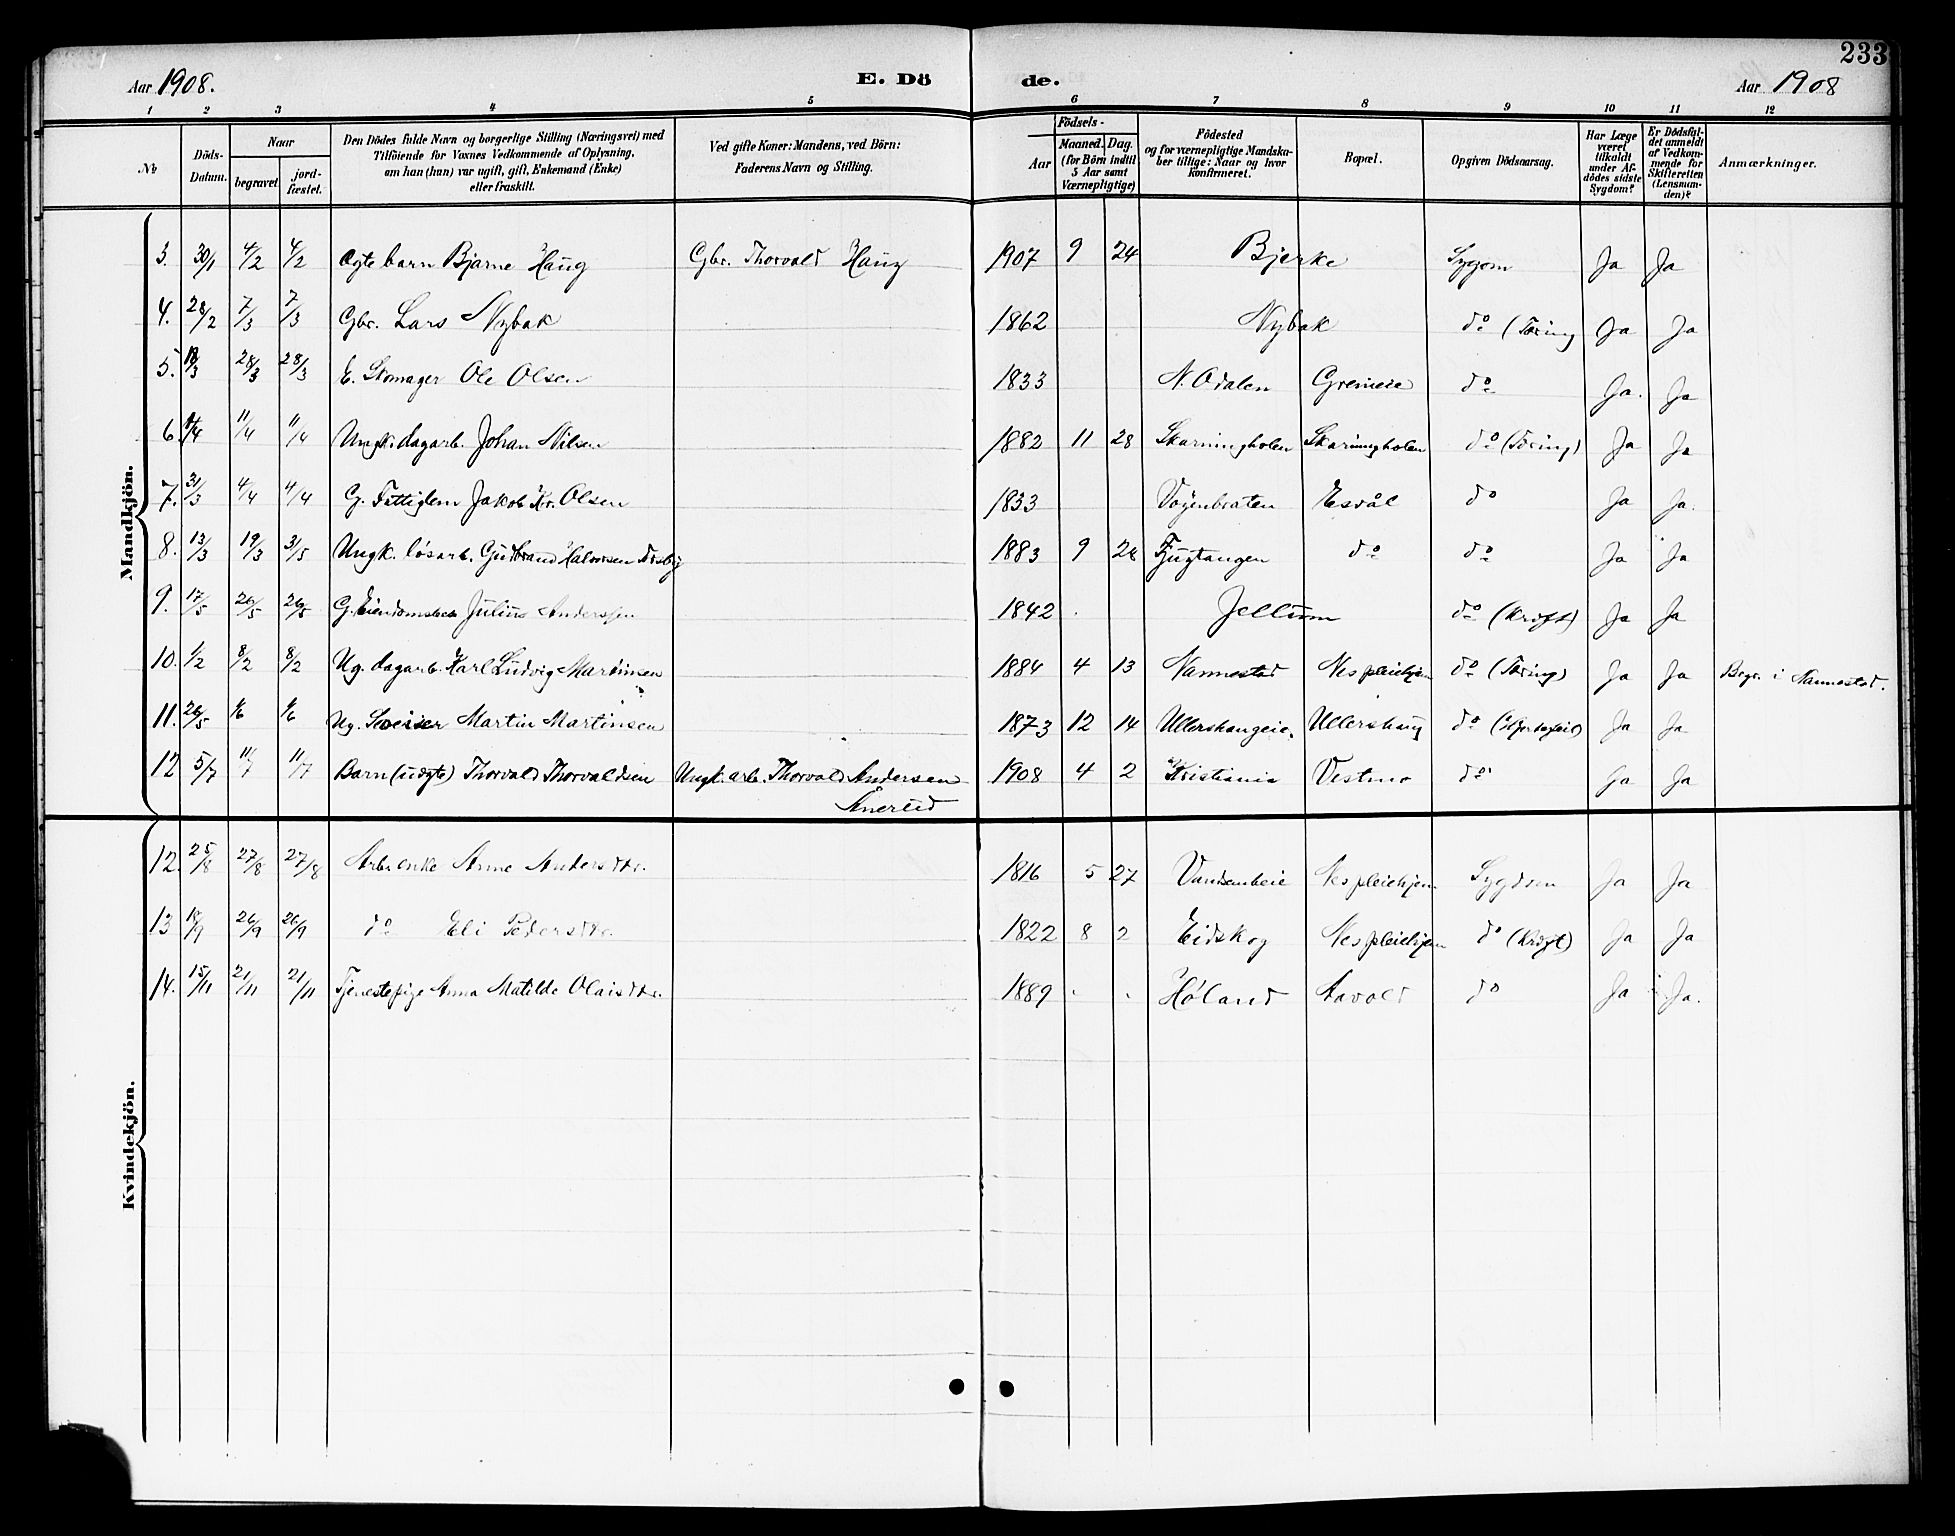 233
Aar 1908. E. Dö de. Aar 1908
1 2 3 4 5 6 7 8 9 10 11 12
No
Döds-Datum.
Naar
begravet
jord-fæstet.
Den Dödes fulde Navn og borgerlige Stilling (Næringsvei) med
Tilföiende for Voxnes Vedkommende af Oplysning,
om han (hun) var ugift, gift, Enkemand (Enke)
eller fraskilt.
Ved gifte Koner: Mandens, ved Börn:
Faderens Navn og Stilling.
Födsels-
Aar
Maaned. Dag.
(for Börn indtil
5 Aar samt
Værnepligtige)
Födested
og for værnepligtige Mandska-
ber tillige: Naar og hvor
konfirmeret.
Bopæl.
Opgiven Dödsaarsag.
Har Læge
været
tilkaldt
under Af-
dödes sidste
Sygdom?
Er Dödsfal-
det anmeldt
af Vedkom-
mende for
Skifteretten
(Lensman-
den)?
Anmærkninger.
Mandkjön.
3. 30/1 4/2 4/2 Ægte barn Bjarne Haug Gbr. Thorvald Haug 1907 9 24 Bjerke Sygdom Ja Ja
4. 28/2 7/3 7/3 Gbr. Lars Nybak 1862 Nybak do (Tæring Ja Ja
5. 28/3 28/3 E. Skomager Ole Olsen 1833 N. Odalen do Ja. Ja
6. 11/4 11/4 Ungk. dagarb. Johan Nilsen 1882 11 28 Skarningholen Skarningholen do (Tæring) Ja Ja
7. 31/3 4/4 4/4 G. Fattiglem Jakob Kr. Olsen 1833 Vøyenbraten Esvål do Ja Ja.
8. 13/3 19/3 31/5 Ungk. løsarb. Gulbrand Halvorsen 1883 9 do do Ja Ja
9. 17/5 26/5 26/5 G. Julius Anderssen 1842 Jellum do (Kræft) Ja Ja
10. 1/2 8/2 8/2 Ug. dagarb. Karl Ludvig Martinsen 1884 4 13 Nannestad Nes pleiehjem do (Tæring) Ja Ja Begr. i Nannestad.
11. 26/5 1/6 1/6 Ug. Sveiser Martin Martinsen 1873 12 14 Ullershaugeie. Ullershaug do Ja Ja
12 5/7 11/7 11/7 Barn (uægte) Thorvald Thorvaldsen Ungk. arb. Thorvald Andersen 1908 4 2 Kristiania Vestmo do Ja Ja
Ånerud
Kvindekjön.
12. 25/8 27/8 27/8 Arb. enke Anne Andersdtr. 1816 5 27 Nes pleiehjem Sygdom Ja Ja
13 18/9 26/9 26/9 do Eli Pedersdtr. 1822 8 2 Eidskog Nes pleiehjem do (Kræft) Ja Ja
14. 15/11 21/11 21/11 Tjenestepige Anna Matilde Olaisdtr. 1889 Høland Aavold do Ja Ja.